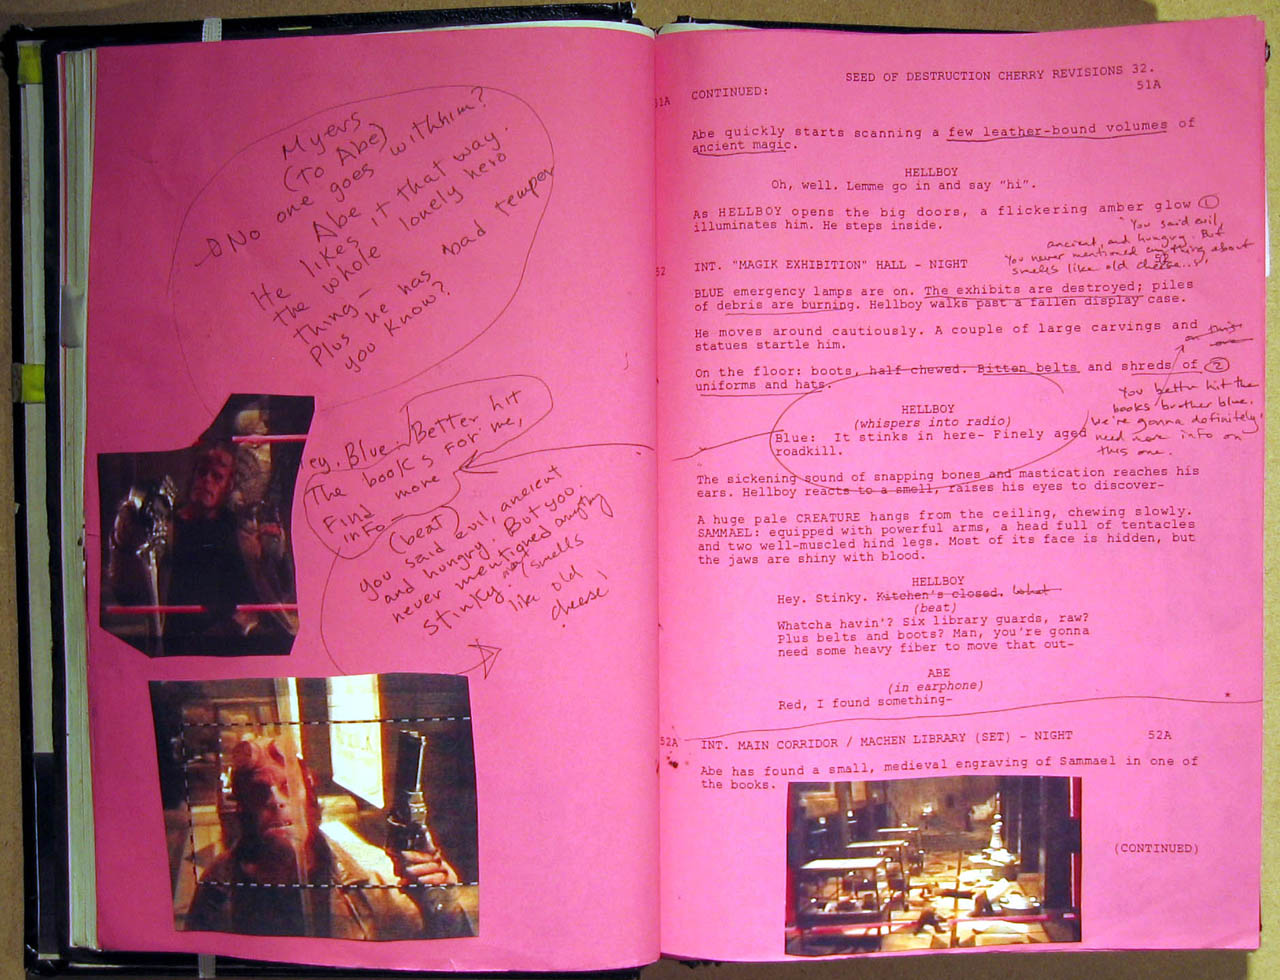 Myers
(To Abe)
No one goes with him?
Abe
He likes it that way.
the whole lonely hero
thing—
Plus he has bad temper
you know?
Hey, Blue. Better hit
The books for me,
Find more
info—
(beat)
you said evil, ancient
and hungry. But you
never mentioned anything
stinky. (smells
like old
cheese)
SEED OF DESTRUCTION CHERRY REVISIONS 32.
51A CONTINUED: 51A
Abe quickly starts scanning a few leather-bound volumes of
ancient magic.
HELLBOY
Oh, well. Lemme go in and say "hi".
As HELLBOY opens the big doors, a flickering amber glow 1
illuminates him. He steps inside.
"You said evil,
ancient, and hungry. But
You never mentioned anything about
smells like old cheese...
52 INT. "MAGIK EXHIBITION" HALL - NIGHT 52
BLUE emergency lamps are on. The exhibits are destroyed; piles
of debris are burning. Hellboy walks past a fallen display case.
He moves around cautiously. A couple of large carvings and
statues startle him.
On the floor: boots, half chewed. Bitten belts and shreds of 2
uniforms and hats.
You better hit the
books brother blue.
We're gonna definitely
need more info on
this one.
HELLBOY
(whispers into radio)
Blue: It stinks in here- Finely aged
roadkill.
The sickening sound of snapping bones and mastication reaches his
ears. Hellboy reacts to a smell, raises his eyes to discover-
A huge pale CREATURE hangs from the ceiling, chewing slowly.
SAMMAEL: equipped with powerful arms, a head full of tentacles
and two well-muscled hind legs. Most of its face is hidden, but
the jaws are shiny with blood.
HELLBOY
Hey. Stinky. Kitchen's closed. What
(beat)
Whatcha havin'? Six library guards, raw?
Plus belts and boots? Man, you're gonna
need some heavy fiber to move that out-
ABE
(in earphone)
Red, I found something-
52A INT. MAIN CORRIDOR / MACHEN LIBRARY (SET) - NIGHT 52A
Abe has found a small, medieval engraving of Sammael in one of
the books.
(CONTINUED)